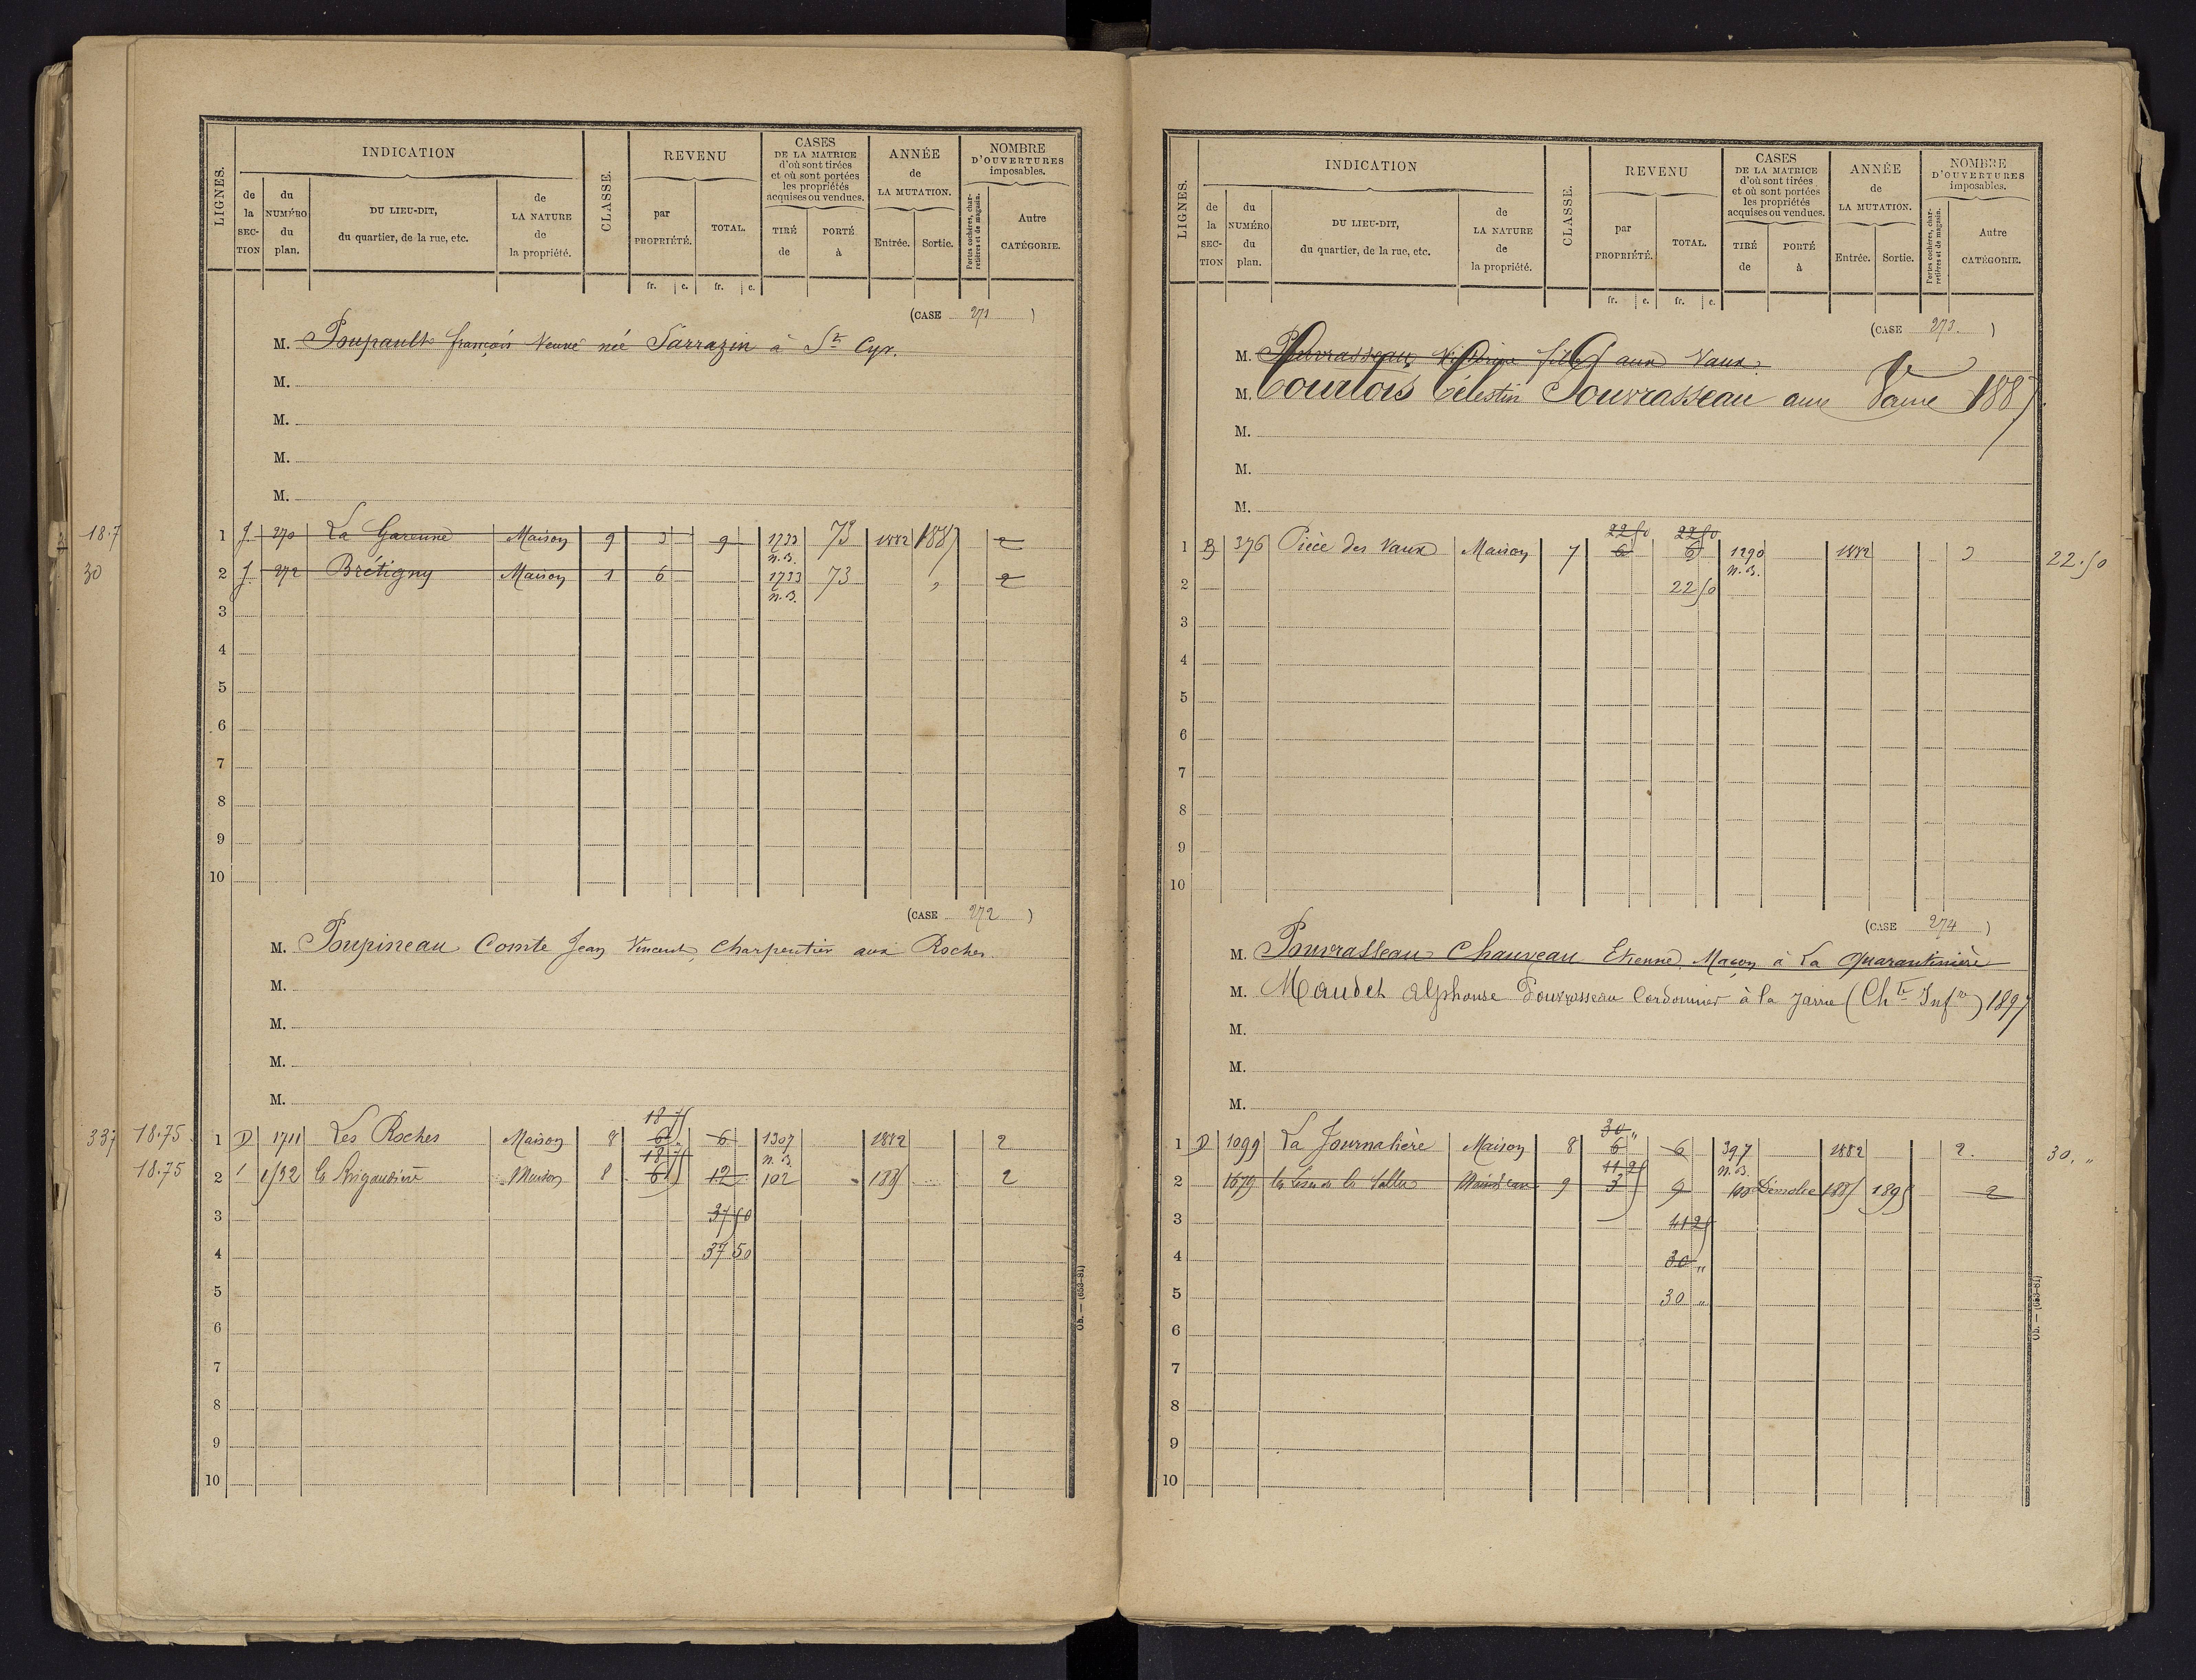 LIGNES.
INDICATION
de la SECTION
du NUMÉRO du plan.
DU LIEU-DIT, du quartier, de la rue, etc.
de LA NATURE de la propriété.
CLASSE.
REVENU
par PROPRIÉTÉ.
TOTAL.
fr. c. fr. c.
CASES DE LA MATRICE d'où sont tirées et où sont portées les propriétés acquises ou vendues.
TIRÉ de
PORTÉ à
ANNÉE de LA MUTATION.
Entrée. Sortie.
NOMBRE D'OUVERTURES imposables.
Portes cochères, charretières et de magasin.
Autre CATÉGORIE.
(CASE 271)
M. Poupault françois Veuve née Sarrazin à St Cyr.
M.
M.
M.
M.
18.7
1 J 270 La Garenne Maison 9 3 9 1733 n.B. 73 1882 1887 2
30
2 J 272 Brétigny Maison 1 6 1733 n.B. 73 " 2
3
4
5
6
7
8
9
10
(CASE 272)
M. Poupineau Comte Jean Vincent, Charpentier aux Roches
M.
M.
M.
M.
18 75
337 18.75 1 D 1711 Les Roches Maison 8 6 6 1307 n.B. 1882 2
18 75
18.75 2 1 1532 Maison 8 6 12 102 1885 2
3 37 50
4 37 50
5
6
7
8
9
10
Ob. — (653-81)
LIGNES.
INDICATION
de la SECTION
du NUMÉRO du plan.
DU LIEU-DIT, du quartier, de la rue, etc.
de LA NATURE de la propriété.
CLASSE.
REVENU
par PROPRIÉTÉ.
TOTAL.
fr. c. fr. c.
CASES DE LA MATRICE d'où sont tirées et où sont portées les propriétés acquises ou vendues.
TIRÉ de
PORTÉ à
ANNÉE de LA MUTATION.
Entrée. Sortie.
NOMBRE D'OUVERTURES imposables.
Portes cochères, charretières et de magasin.
Autre CATÉGORIE.
(CASE 273.)
M. Pouvrasseau Victorine fille aux Vaux
M. Courtois Célestin Pouvrasseau aux Vaux Ve 1887
M.
M.
M.
22 50 22 50
1 B 376 Pièce des Vaux Maison 7 6 6 1290 n.B. 1882 3 22.50
2 22 50
3
4
5
6
7
8
9
10
(CASE 274)
M. Pouvrasseau Chauveau Etienne, Maçon à La Quarantinière
M. Maudet Alphonse Pouvrasseau Cordonnier à la Jarrie (Chte Infre) 1897
M.
M.
M.
30 "
1 D 1099 La Journalière Maison 8 6 6 397 n.B. 1882 2. 30. "
11 25
2 1679 9 3 9 Démolie 1885 1895 2
3 41 25
4 30 "
5 30 "
6
7
8
9
10
Ob. — (653-81)